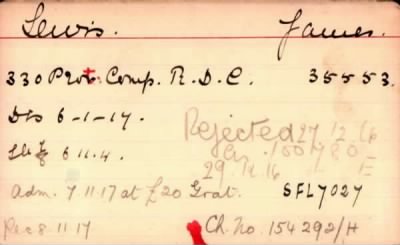 Lewis. James.
330 Prot. Comp. R.D.C. 35553.
Dis 6-1-17. Rejected 27.12.16
6.11.4. 100780
29.12.16 E
Adm. 7.11.17 at £20 Grat. SFL7027
Rec 8.11.17 Ch. No. 154292/H